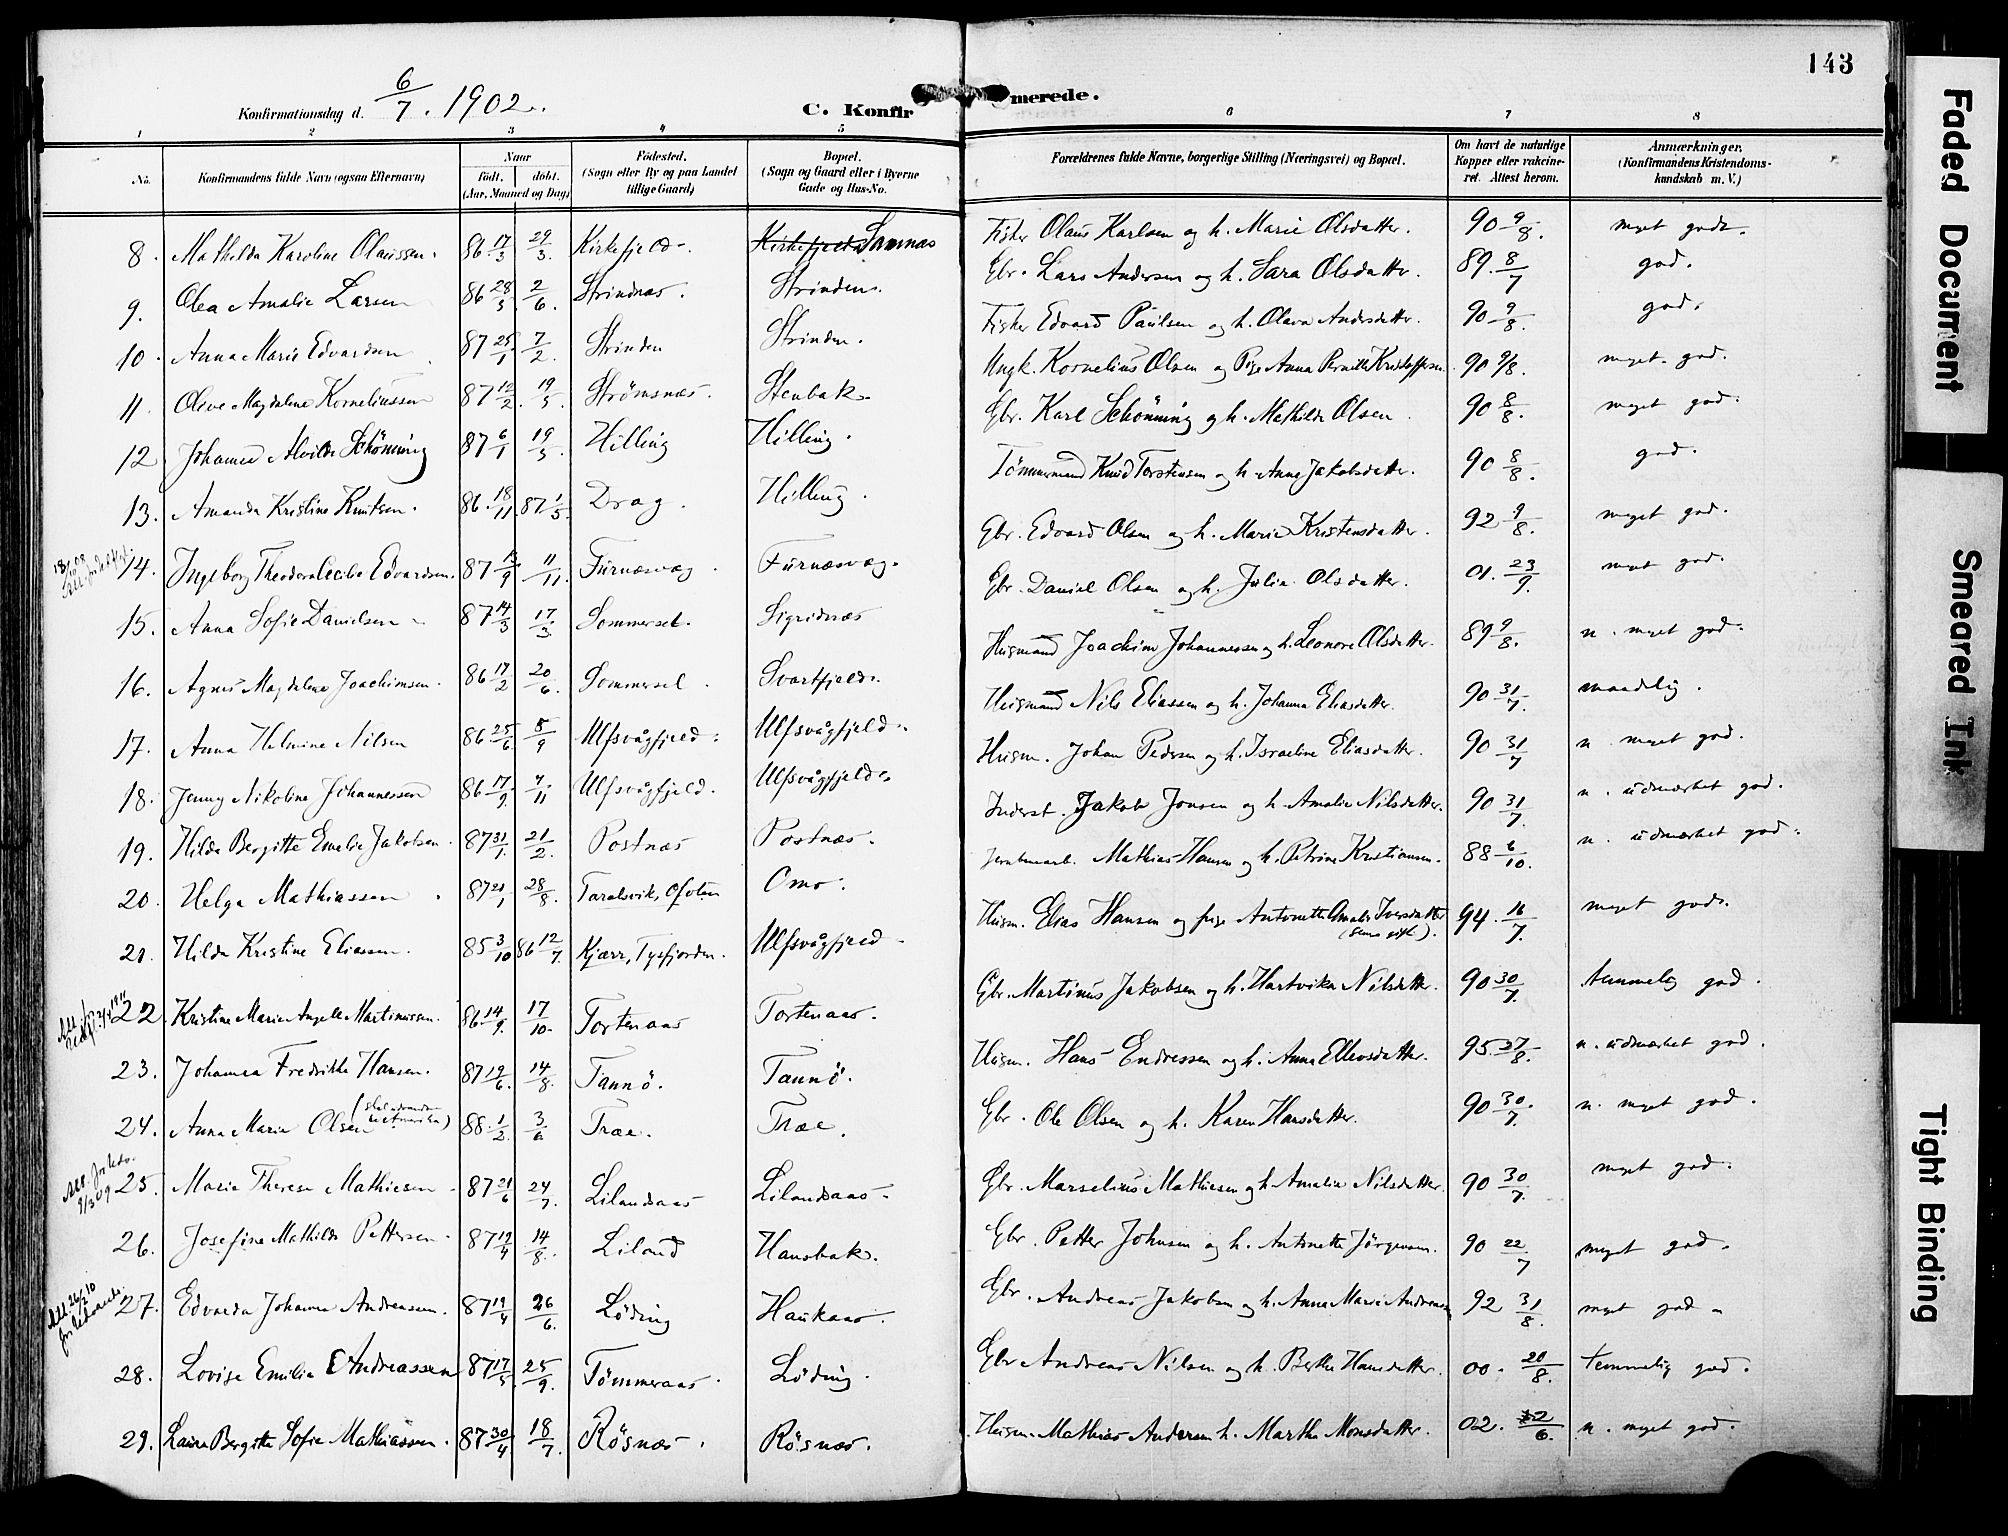 143
Konfirmationsdag d. 6/7. 1902.
C. Konfirmerede.
1 2 3 4 5 6 7 8
No. Konfirmandens fulde Navn (ogsaa Efternavn) Naar født. døbt. (Aar, Maaned og Dag) Fødested. (Sogn eller By og paa Landet tillige Gaard) Bopæl. (Sogn og Gaard eller i Byerne Gade og Hus-No. Forældrenes fulde Navne, borgerlige Stilling (Næringsvei) og Bopæl. Om havt de naturlige Kopper eller vakcineret. Attest herom. Anmærkninger. (Konfirmandens Kristendomskundskab m. V.)
8. Mathilda Karoline Olaussen. 86 17/3 29/3. Kirkefjeld. Kirkefjeld Sannæs Fisker Olaus Karlsen og h. Marie Olsdatter. 90 9/8. meget god.
9. Olea Amalie Larsen 86 28/5. 2/6. Strindnæs. Strinden. Gbr. Lars Andersen og h. Sara Olsdattr. 89. 8/7 god.
10. Anna Marie Edvardsen 87 25/1 7/2. Strinden Strinden. Fisker Edvard Paulsen og h. Olava Andersdatter. 90 9/8. god.
11. Olive Magdalene Korneliussen 87 12/2. 19/5. Strømsnæs. Stenbak. Ungk. Kornelius Olsen og Pige Anna Pernille Kristoffersen. 90 9/8. meget god.
12. Johanna Alvilde Schönning 87 6/1 19/5. Hilling Hilling. Gbr. Karl Schönning og h. Mathilde Olsen. 90 8/8. meget god.
13. Amanda Kristine Knutsen. 86 18/11. 87 1/5. Drag. Hilling. Tömmermand Knud Torstensen og h. Anne Jakobsdatter. 90 8/8. god.
14. Ingeborg Theodora Cecilie Edvardsen. 87 13/9 11/11. Furnæsvæg. Furnæsvæg. Gbr. Edvard Olsen og h. Marie Kristensdatter. 92 9/8. meget god.
15. Anna Sofie Danielsen 87 14/3 17/3. Sommerset. Sigridnæs Gbr. Daniel Olsen og h. Julia Olsdatter. 01. 23/9. meget god.
16. Agnes Magdalena Joachimsen. 86 17/2 20/6. Sommersel. Svartfjeld. Husmand Joachim Johannessen og h. Leonore Olsdatter. 89 9/8. n. meget god.
17. Anna Helmine Nilsen 86 25/6 5/9 Ulfsvågfjeld. Ulfsvågfjeld. Husmand Nils Eliassen og h. Johanna Eliasdatter. 90 31/7. maadelig.
18. Jenny Nikoline Johannessen 86 17/9. 7/11 Ulfsvågfjeld. Ulfsvågfjeld. Husm. Johan Pedersen og h. Israeline Eliasdatter. 90 31/7 n. meget god.
19. Hilda Bergitte Emelie Jakobsen. 87 31/1. 21/2. Postnæs Postnæs. Inderst. Jakob Jonsen og h. Amalie Nilsdatter. 90 31/7. n. udmærket god.
20. Helga Mathiassen 87 21/1 28/8. Taralsvik, Ofoten Omo. Jernbanearb. Mathias Hansen og h. Petrine Kristiansen. 88 6/10. n. udmærket god.
21. Hilda Kristine Eliassen. 85 3/10 86 12/7. Kjærr, Tysfjorden. Ulfsvågfjeld. Husm. Elias Hansen og pige Antonette Amalie Iversdatter (senere gift). 94. 16/7. meget god.
22. Kristine Marie Angell Martinussen. 86 14/9. 17/10. Tortenaas Tortenaas. Gbr. Martinus Jakobsen og h. Hartvika Nilsdatter. 90 30/7. temmelig god.
23. Johanna Fredrikke Hansen. 87 19/6. 14/8. Tannö. Tannö. Husm. Hans Endressen og h. Anna Ellensdatter. 95. 27/8. n. udmærket god.
24. Anna Marie Olsen 88. 1/2. 3/6 Træe. Træe. Gbr. Ole Olsen og h. Karen Hansdatter. 90 30/7. n. meget god.
25. Marie Therese Mathiesen 87 21/6 24/7. Lilandsaas Lilandsaas. Gbr. Marselius Mathiesen og h. Amalie Nilsdatter. 90 30/7. meget god.
26. Josefine Mathilde Pettersen 87 19/4 14/8. Liland Hansbak. Gbr. Petter Johnsen og h. Antonette Jörgensen. 90 22/7 meget god.
27. Edvarda Johanna Andreassen. 87 19/4 26/6. Löding Haukaas. Gbr. Andreas Jakobsen og h. Anna Marie Andreassen 92 31/8. meget god
28. Lovise Emilie Andreassen 87 17/5 25/9. Tömmeraas Löding. Gbr Andreas Nilsen og h. Berthe Hansdatter. 00. 20/8. temmelig god.
29. Laura Bergitte Sofie Mathiassen. 87 30/4 18/7. Rösnæs. Rösnæs. Husm. Mathias Andersen h. Marthe Monsdatter. 02. 12/6. n. meget god.
Faded Document
Smeared Ink
Tight Binding